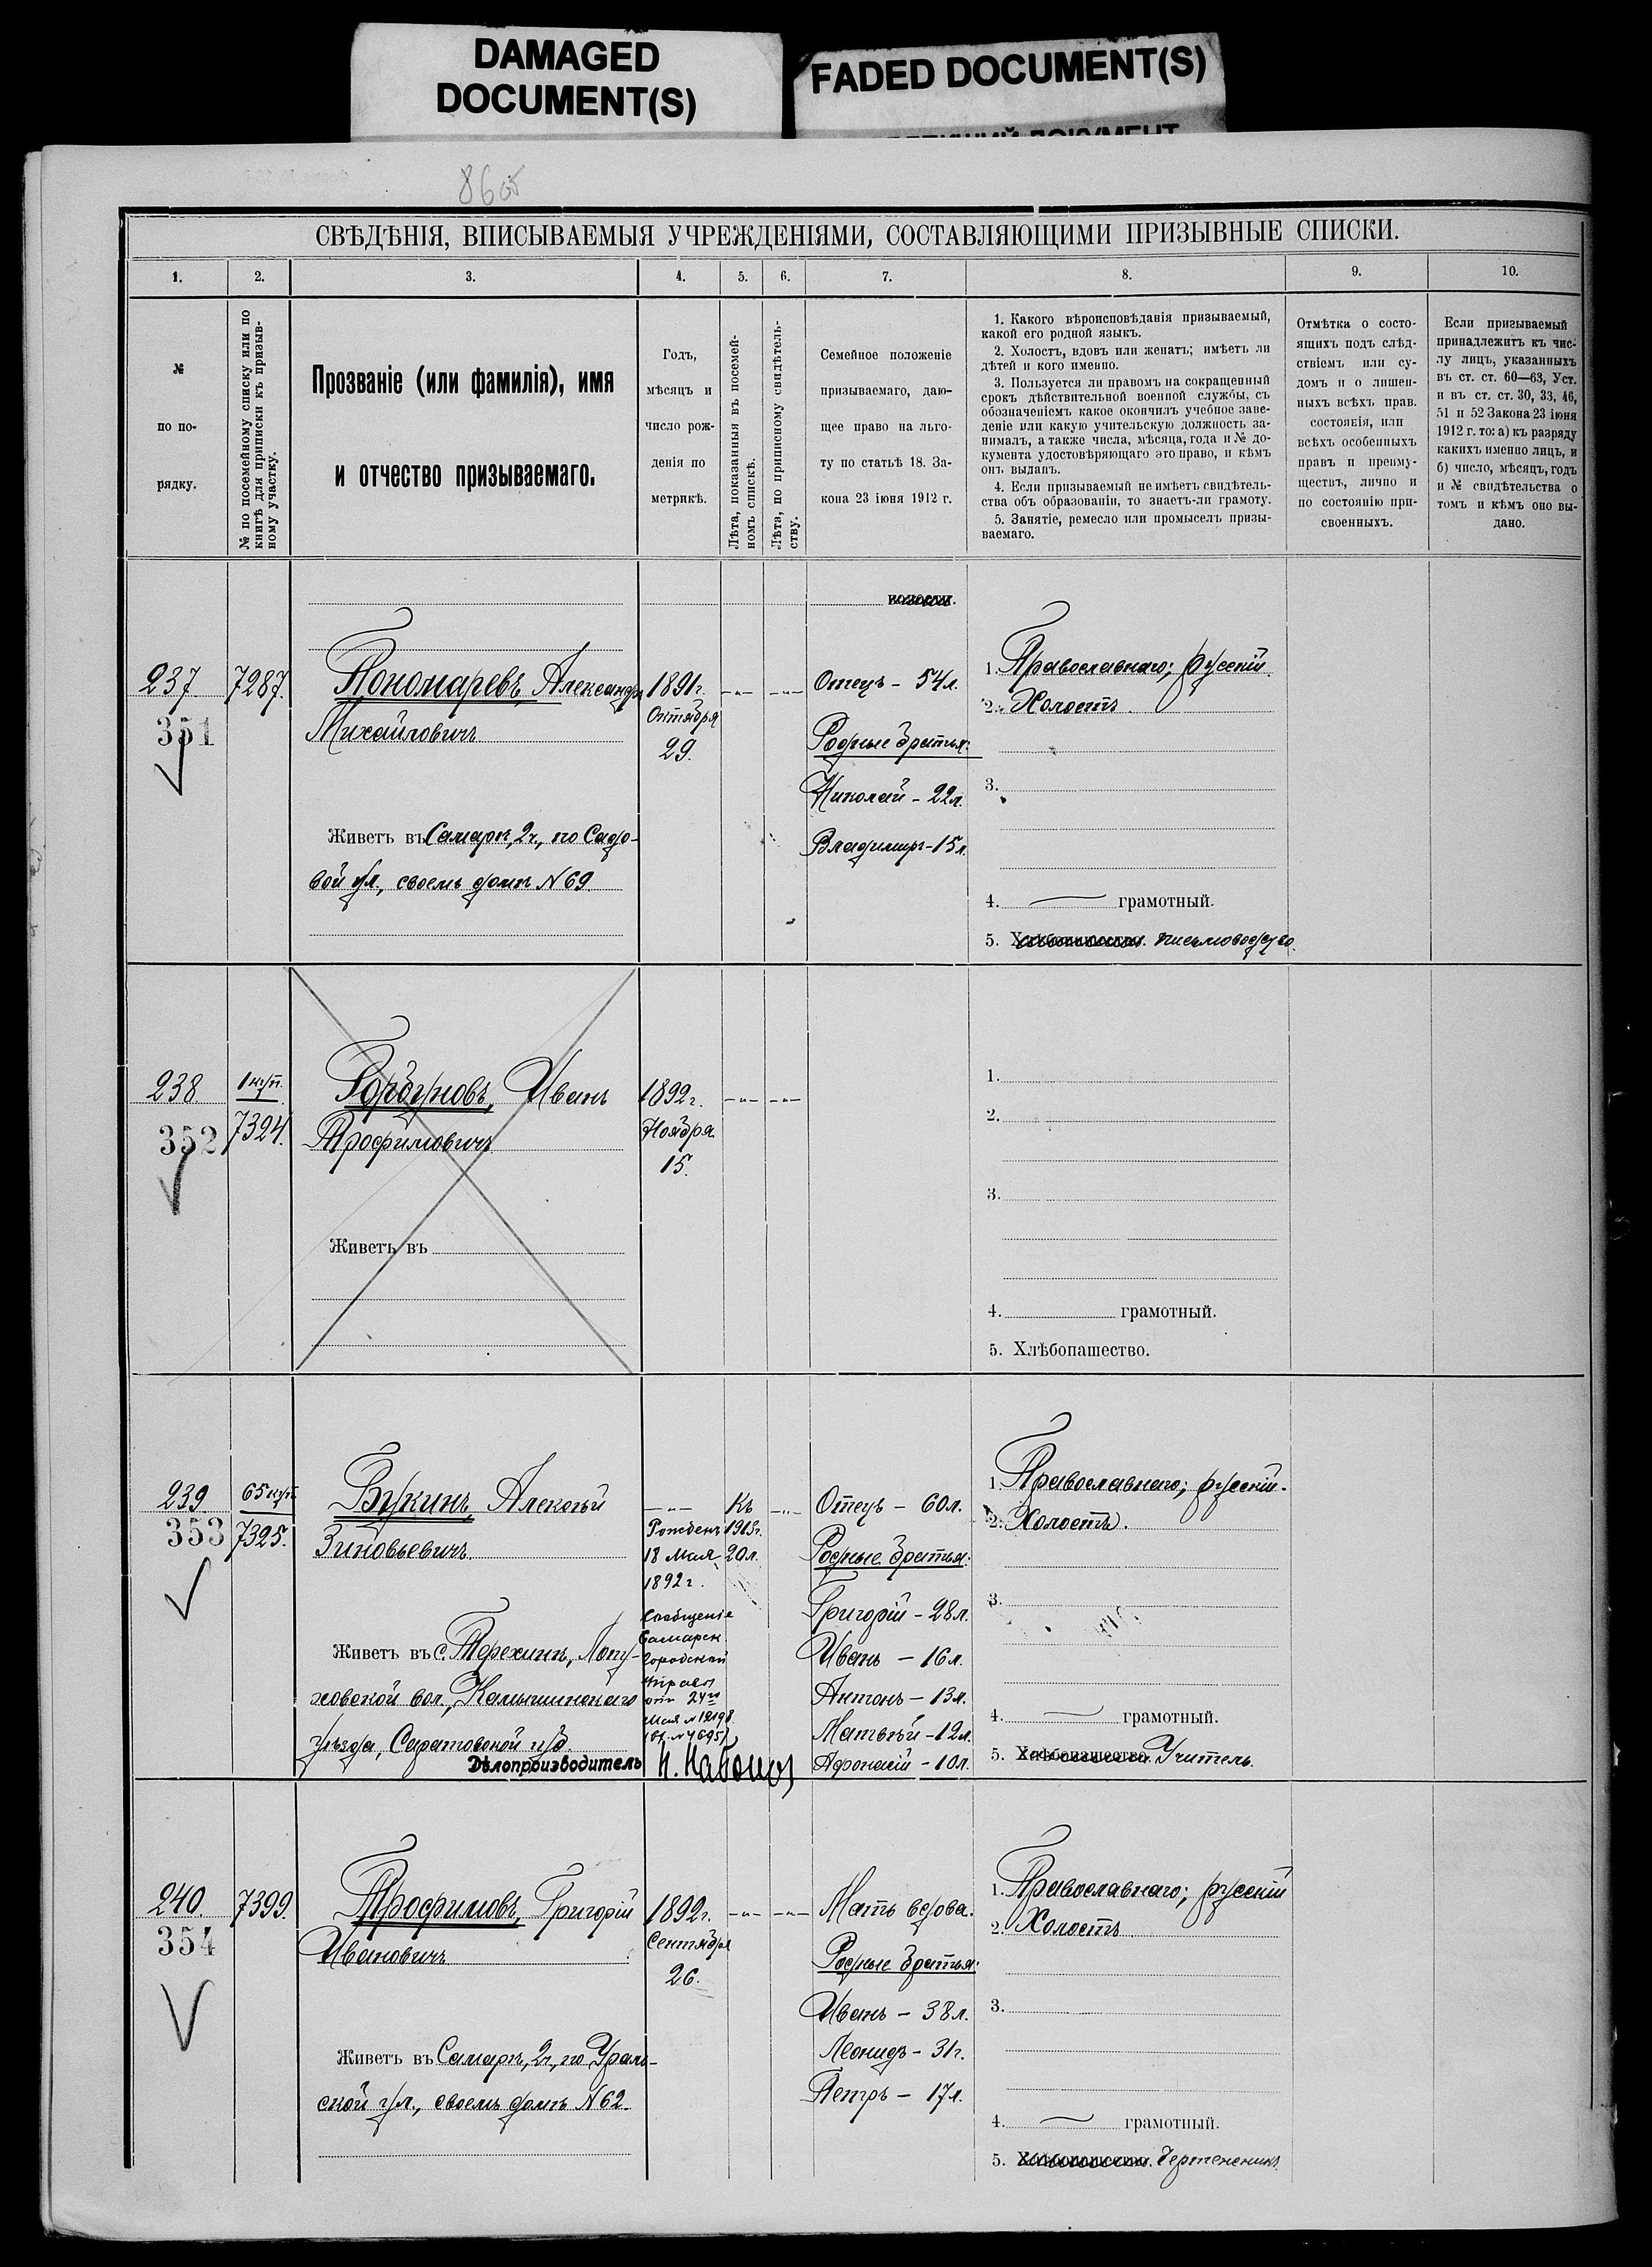 DAMAGED
DOCUMENT(S)
FADED DOCUMENT(S)
86об
СВѢДѢНІЯ, ВПИСЫВАЕМЫЯ УЧРЕЖДЕНІЯМИ, СОСТАВЛЯЮЩИМИ ПРИЗЫВНЫЕ СПИСКИ.
1. 2. 3. 4. 5. 6. 7. 8. 9. 10.
№
по по-
рядку.
№ по посемейному списку или по
книгѣ для приписки къ призыв-
ному участку.
Прозваніе (или фамилія), имя
и отчество призываемаго.
Годъ,
мѣсяцъ и
число рож-
денія по
метрикѣ.
Лѣта, показанныя въ посемей-
номъ спискѣ.
Лѣта, по приписному свидѣтель-
ству.
Семейное положеніе
призываемаго, даю-
щее право на льго-
ту по статьѣ 18. За-
кона 23 іюня 1912 г.
1. Какого вѣроисповѣданія призываемый,
какой его родной языкъ.
2. Холостъ, вдовъ или женатъ; имѣетъ ли
дѣтей и кого именно.
3. Пользуется ли правомъ на сокращенный
срокъ дѣйствительной военной службы, съ
обозначеніемъ какое окончилъ учебное заве-
деніе или какую учительскую должность за-
нималъ, а также числа, мѣсяца, года и № до-
кумента удостовѣряющаго это право, и кѣмъ
онъ выданъ.
4. Если призываемый не имѣетъ свидѣтель-
ства объ образованіи, то знаетъ-ли грамоту.
5. Занятіе, ремесло или промыселъ призы-
ваемаго.
Отмѣтка о состо-
ящихъ подъ слѣд-
ствіемъ или су-
домъ и о лишен-
ныхъ всѣхъ прав.
состоянія, или
всѣхъ особенныхъ
правъ и преиму-
ществъ, лично и
по состоянію при-
своенныхъ.
Если призываемый
принадлежитъ къ чис-
лу лицъ, указанныхъ
въ ст. ст. 60—63, Уст.
и въ ст. ст. 30, 33, 46,
51 и 52 Закона 23 іюня
1912 г. то: а) къ разряду
какихъ именно лицъ, и
б) число, мѣсяцъ, годъ
и № свидѣтельства о
томъ и кѣмъ оно вы-
дано.
237 7287.
351
Пономаревъ, Александръ
Михайловичъ
Живетъ въ Самарѣ, 2 ч., по Садо-
вой ул., своемъ домѣ № 69
1891 г.
Октября
29.
Отецъ - 54 л.
Родные братья:
Николай - 22 л.
Владимиръ - 15 л.
1. Православнаго; русскій.
2. Холостъ.
3.
4. грамотный.
5. Хлѣбопашество. Письмоводство.
238 1 куп.
7324.
352
Горбуновъ, Иванъ
Трофимовичъ
Живетъ въ
1892 г.
Ноября
15.
1.
2.
3.
4. грамотный.
5. Хлѣбопашество.
239 65 куп
7325.
353
Букинъ, Алексѣй
Зиновьевичъ
Живетъ въ с. Терехинѣ, Лопу-
ховской вол., Камышинскаго
уѣзда, Саратовской губ.
Дѣлопроизводитель
Рожденъ
18 Мая
1892 г.
Сообщеніе
Самарск.
Городской
Управы
отъ 24го
Мая № 12198
Къ
1913 г.
20 л.
Отецъ - 60 л.
Родные братья:
Григорій - 28 л.
Иванъ - 16 л.
Антонъ - 13 л.
Матвѣй - 12 л.
Афонасій - 10 л.
1. Православнаго; русскій.
2. Холостъ.
3.
4. грамотный.
5. Хлѣбопашество. Учитель.
240. 7399.
354
Трофимовъ, Григорій
Ивановичъ
Живетъ въ Самарѣ, 2 ч., по Ураль-
ской ул., своемъ домѣ № 62.
1892 г.
Сентября
26.
Мать вдова.
Родные братья:
Иванъ - 38 л.
Леонидъ - 31 г.
Петръ - 17 л.
1. Православнаго; русскій
2. Холостъ
3.
4. грамотный.
5. Хлѣбопашество. Чертежникъ.